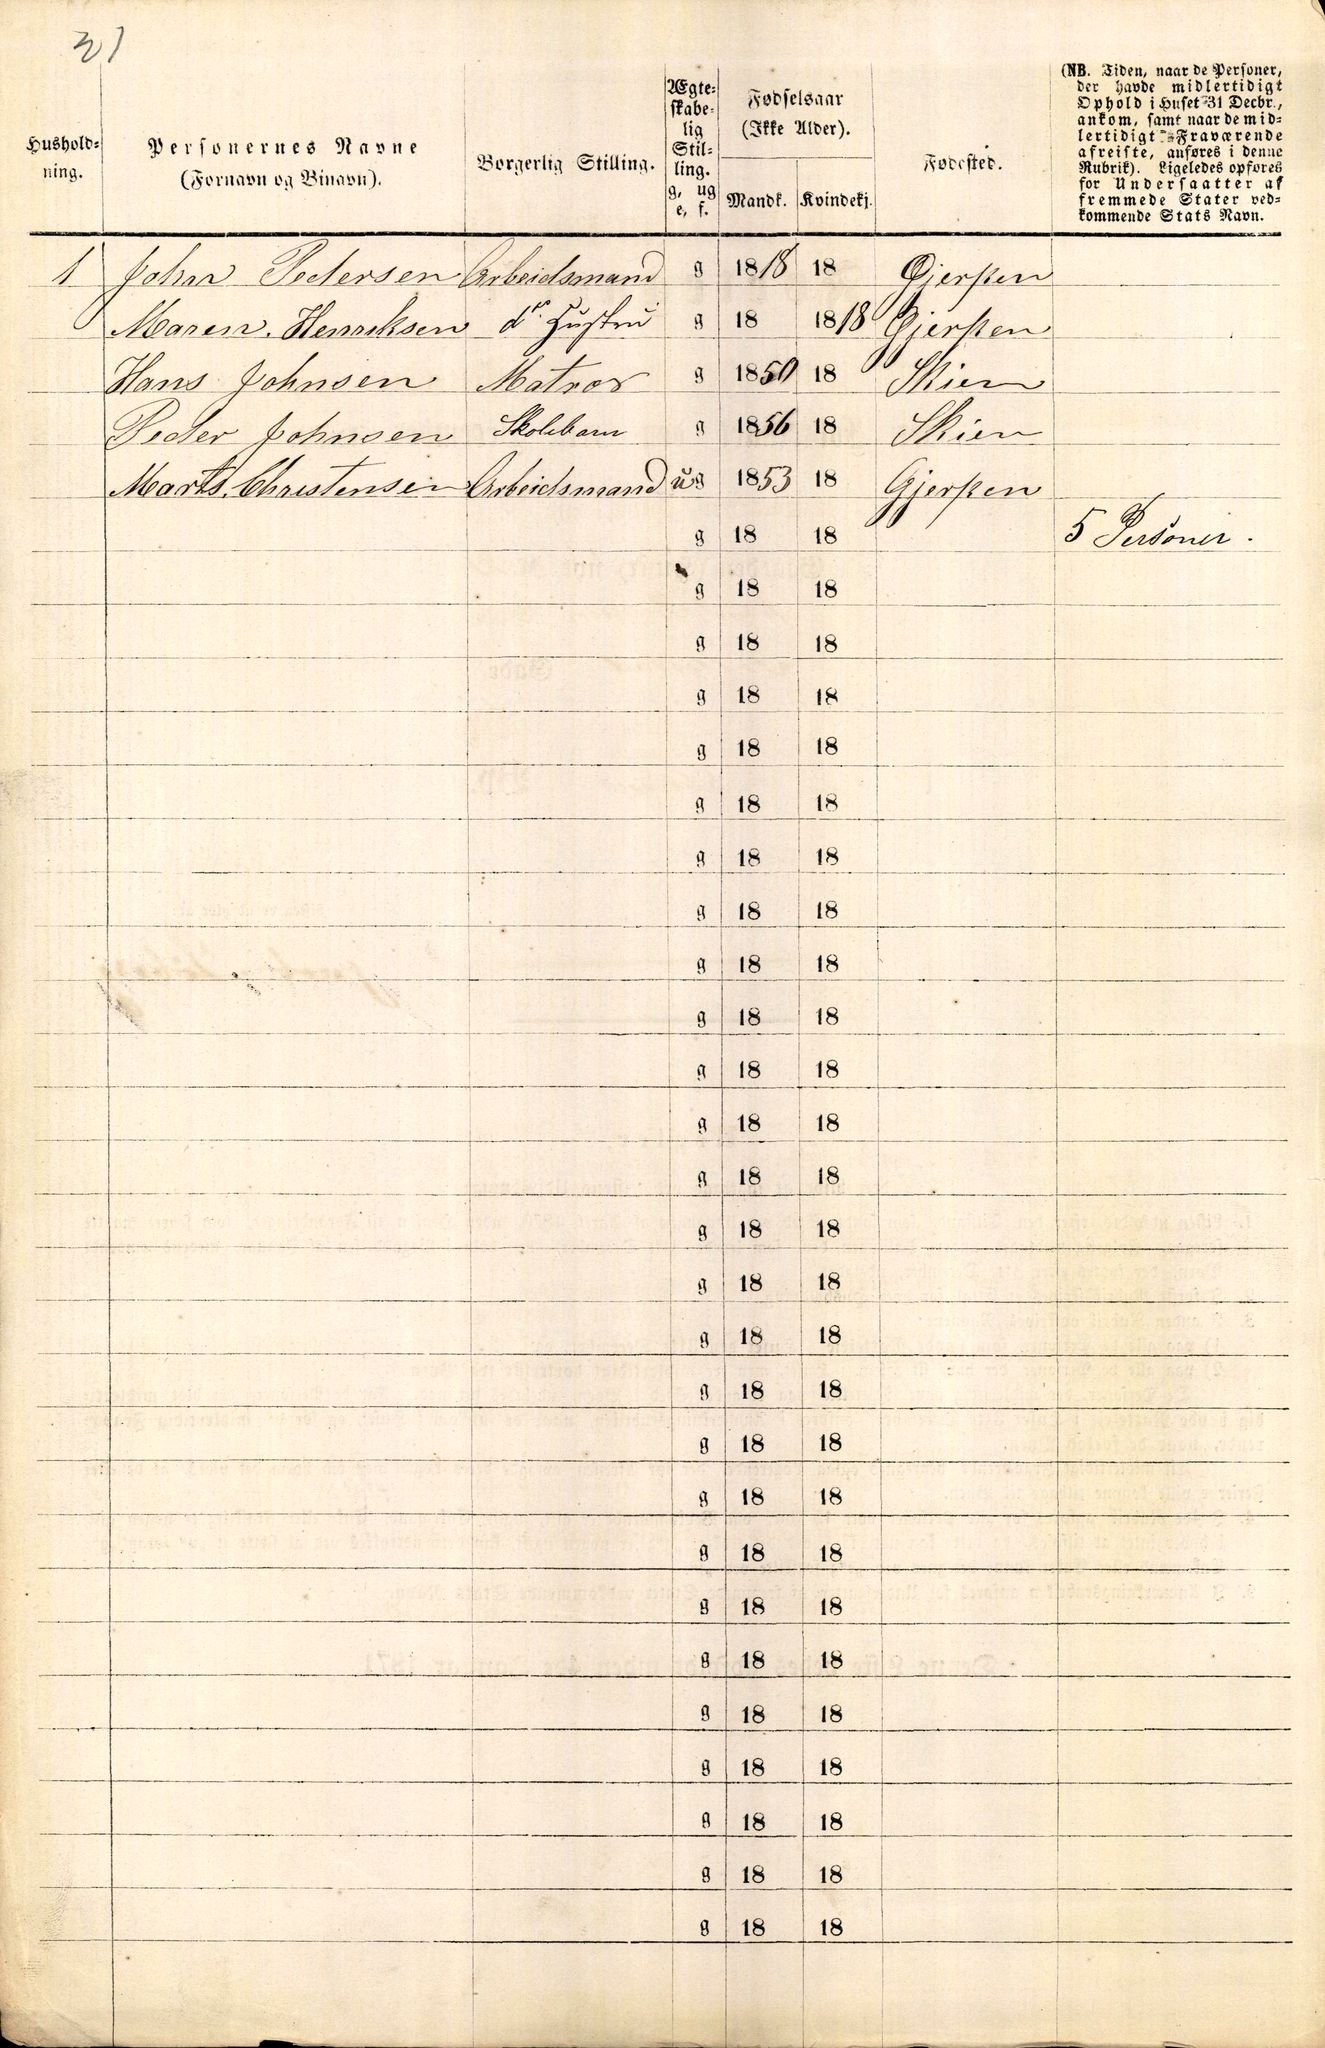 21
Hushold-
ning.
Personernes Navne
(Fornavn og Binavn).
Borgerlig Stilling.
Ægte-
skabe-
lig
Stil-
ling.
g, ug
e, f.
Fødselsaar
(Ikke Alder).
Mandk. Kvindekj.
Fødested.
(NB. Tiden, naar de Personer,
der havde midlertidigt
Ophold i Huset 31 Decbr.,
ankom, samt naar de mid-
lertidigt Fraværende
afreiste, anføres i denne
Rubrik). Ligeledes opføres
for Undersaatter af
fremmede Stater ved-
kommende Stats Navn.
1 John Pedersen Arbeidsmand g 1818 18 Gjerpen
Maren Henriksen ds Hustru g 18 1818 Gjerpen
Hans Johnsen Matros g 1850 18 Skien
Peder Johnsen Skolebarn g 1856 18 Skien
Christensen Arbeidsmand ug 1853 18 Gjerpen
g 18 18 5 Personer.
g 18 18
g 18 18
g 18 18
g 18 18
g 18 18
g 18 18
g 18 18
g 18 18
g 18 18
g 18 18
g 18 18
g 18 18
g 18 18
g 18 18
g 18 18
g 18 18
g 18 18
g 18 18
g 18 18
g 18 18
g 18 18
g 18 18
g 18 18
g 18 18
g 18 18
g 18 18